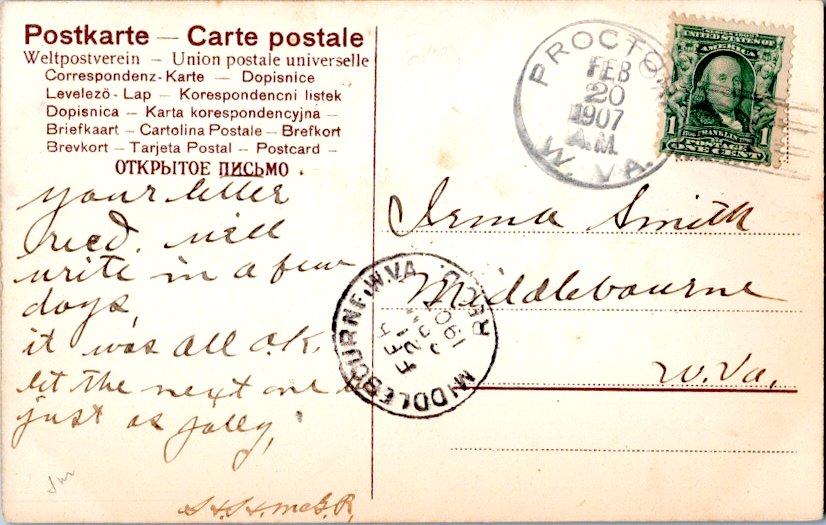 Postkarte — Carte postale
Weltpostverein — Union postale universelle
Correspondenz-Karte — Dopisnice
Levelezö-Lap — Korespondencni listek
Dopisnica — Karta korespondencyjna —
Briefkaart — Cartolina Postale — Brefkort
Brevkort — Tarjeta Postal — Postcard —
ОТКРЫТОЕ ПИСЬМО .
your letter
recd. will
write in a few
days,
it was all o.k.
let the next one
just as jolly,
PROCTOR
FEB
20
1907
A.M.
W. VA.
UNITED STATES OF
AMERICA
FRANKLIN
1 1
POSTAGE
ONE CENT
Irma Smith
Middlebourne
W.Va.
MIDDLEBOURNE, W.VA. REC'D.
FEB
21
1907